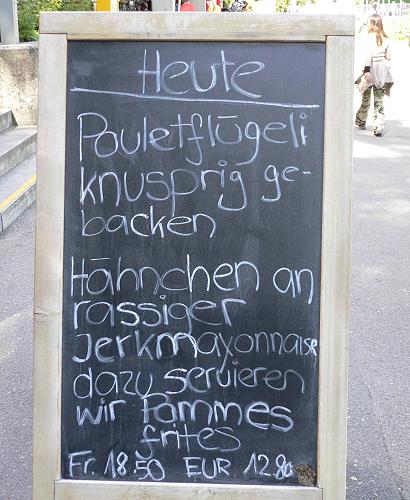 Heute
Pouletflügeli
knusprig ge-
backen
Hähnchen an
rassiger
Jerkmayonnaise
dazu servieren
wir Pommes
frites
Fr. 18.50 EUR 12.80